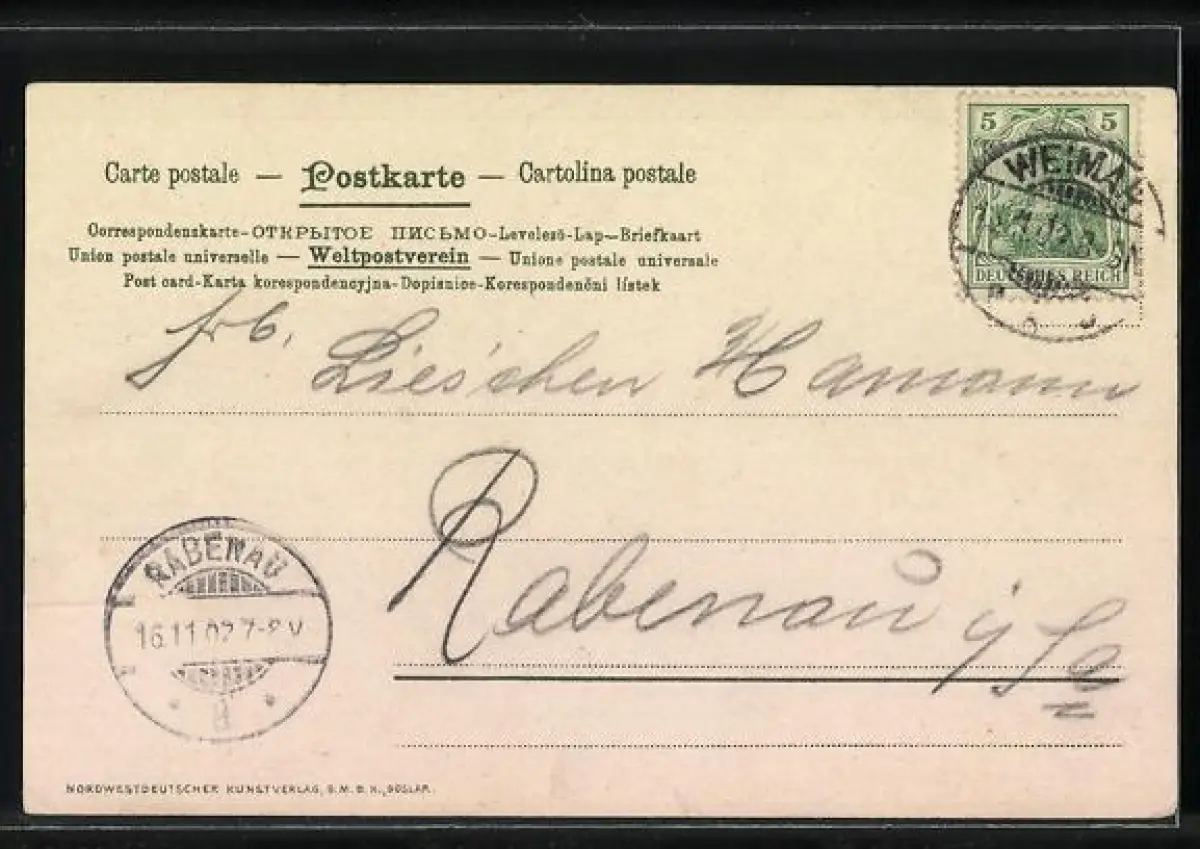 Carte postale — Postkarte — Cartolina postale
Correspondenskarte-ОТКРЫТОЕ ПИСЬМО-Levelező-Lap-Briefkaart
Union postale universelle — Weltpostverein — Unione postale universale
Post card-Karta korespondencyjna-Dopisnice-Korespondenční lístek
5 5
WEIMAR
DEUTSCHES REICH
Lies'chen Hamann
Rabenau i/Sa
RABENAU
16.11.02 7-8 V
NORDWESTDEUTSCHER KUNSTVERLAG, G.M.B.H., GOSLAR.